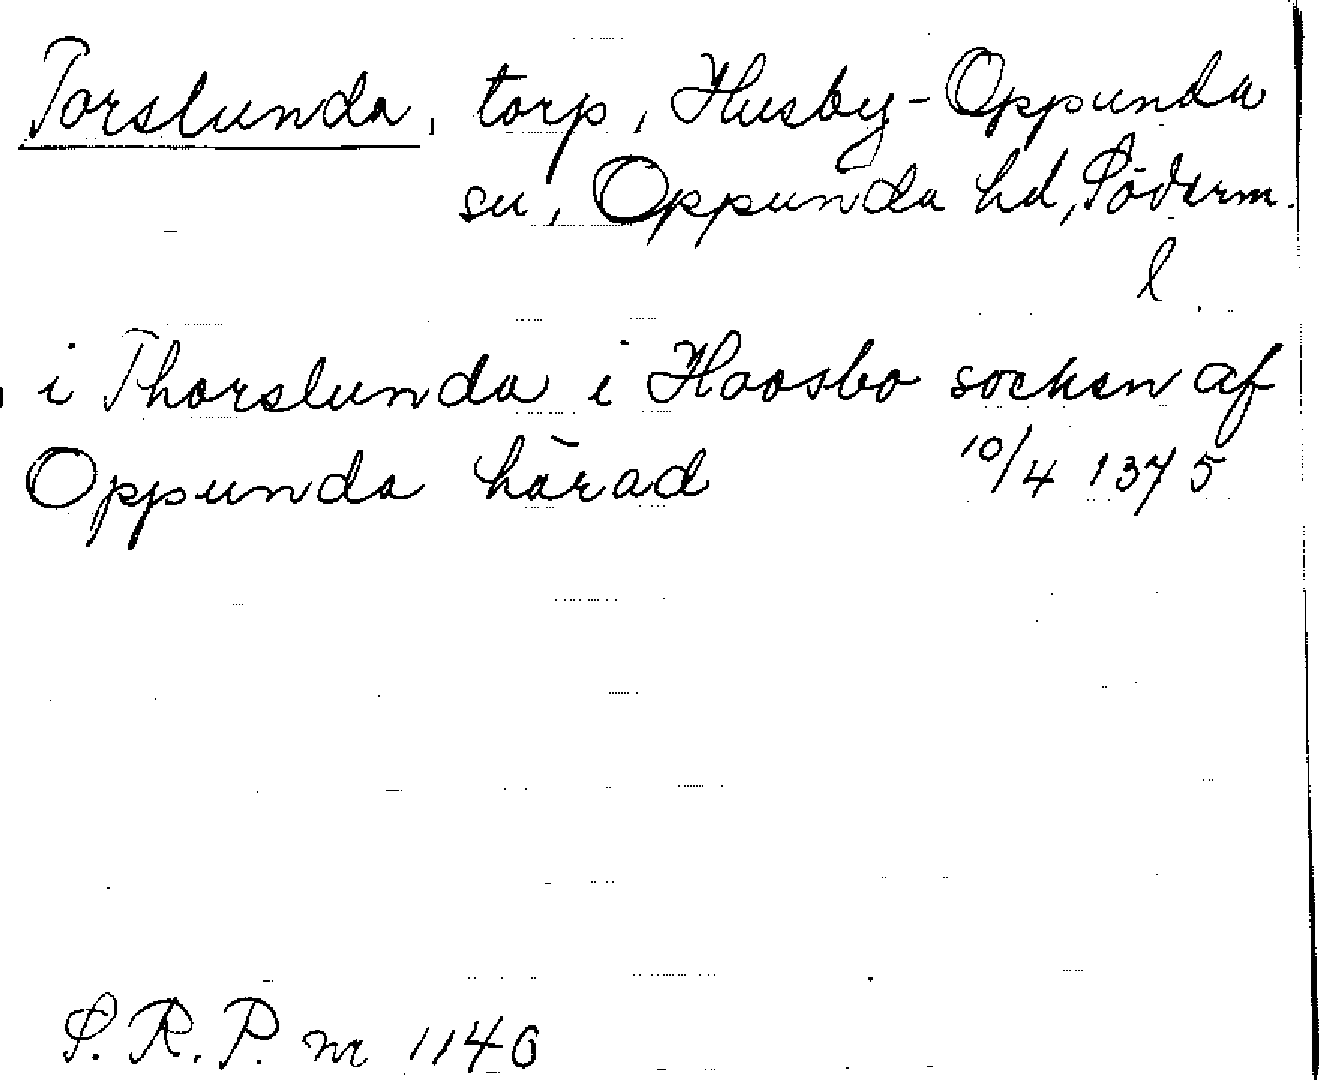 Torslunda, torp, Husby-Oppunda
sn, Oppunda hd, Söderm.
l.
i Thorslunda i Hoosbo socken af
Oppunda härad 10/4 1375
S.R.P. nr 1140